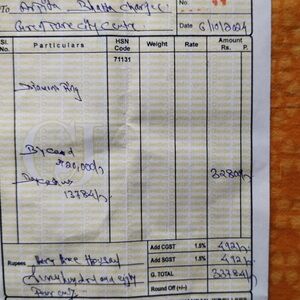 To Arpita Bhatta Charjee
City Centre
No.
Date 6/10/2024
Sl. No. Particulars HSN Code Weight Rate Amount Rs. P.
71131
Diamond Ring
By Card
₹20,000/-
13784/-
32800/-
Add CGST 1.5% 492/-
Rupees Thirty three Thousand Add SGST 1.5% 492/-
Seven hundred and eighty G. TOTAL 33784/-
Four only Round Off (+/-)